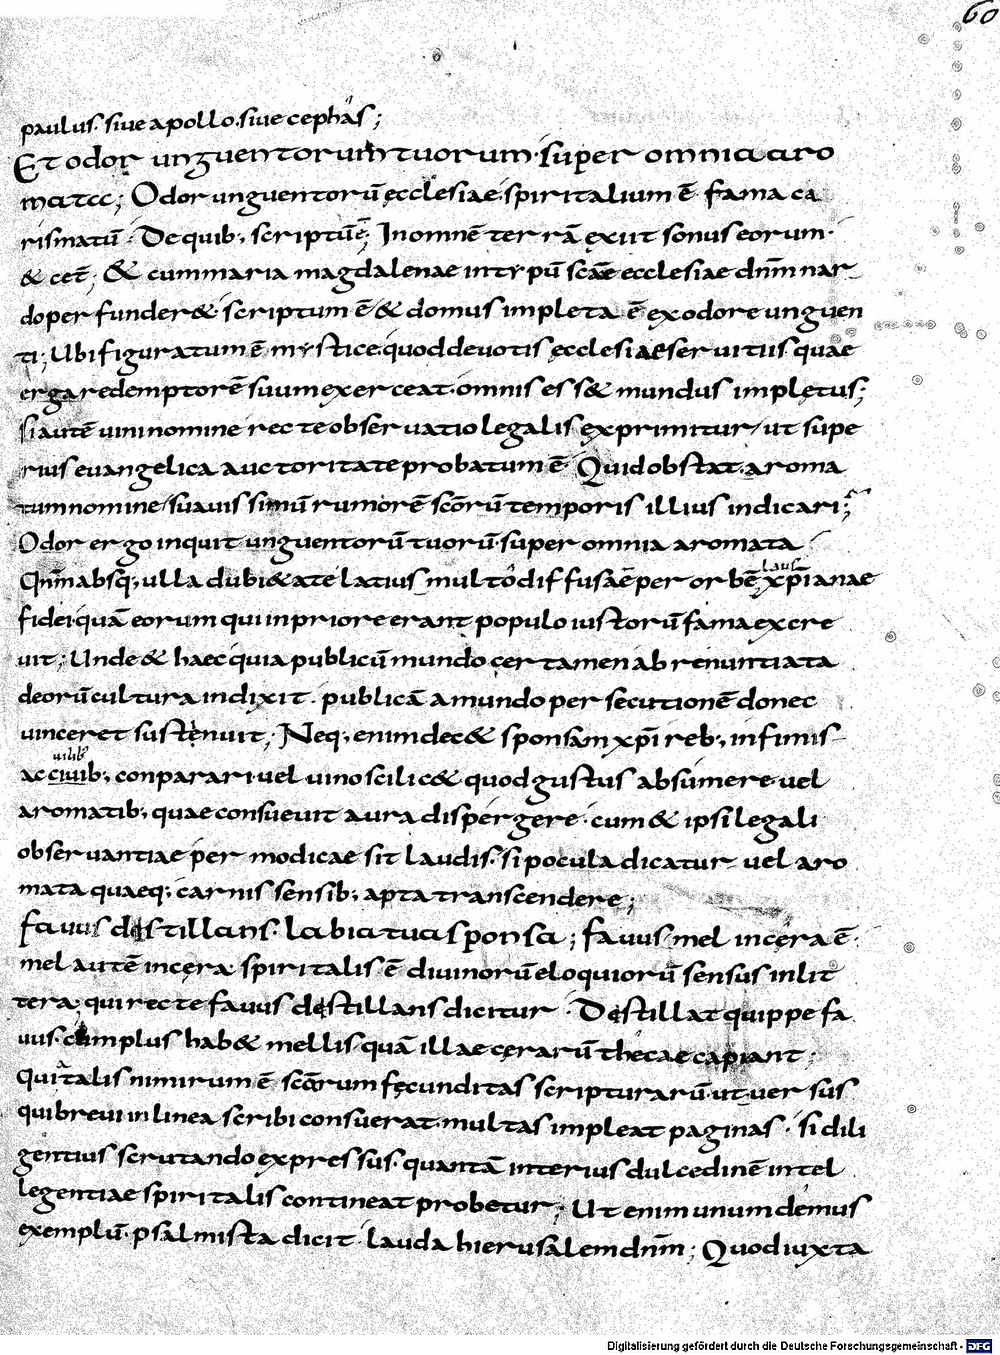 60
paulus. siue apollo. siue cephas;
Et odor unguentorum tuorum. super omnia aro
mata; Odor unguentorū ecclesiae. spiritalium ē fama ca
rismatū. De quib; scriptū ē; In omnē terrā exiit sonus eorum.
& cet̄; & cum maria magdalenae in typū scāe ecclesiae dn̄m nar
do perfunder& scriptum ē & domus impleta ē ex odore unguen
ti; Ubi figuratum ē mystice quod deuotis ecclesiae seruitiis quae
erga redemptorē suum exerceat. omnis ess& mundus impletus;
si autē uini nomine recte obseruatio legalis exprimitur. ut supe
rius euangelica auctoritate probatum ē. Quid obstat. aroma
tum nomine suauissimū rumorē scōrū temporis illius indicari;
Odor ergo inquit unguentorū tuorū. super omnia aromata
Qn̄m absq; ulla dubi&ate latius multo diffusa ē per orbē laus xp̄ianae
fidei. quā eorum qui in priore erant populo iustorū fama excre
uit; Unde & haec quia publicū mundo certamen abrenuntiata
deorū cultura indixit. publicā a mundo persecutionē donec
uinceret sustenuit; Neq; enim dec& sponsam xp̄i reb; infimis
uilib;
ac ciuib; conparari. uel uino scilic& quod gustus absumere uel
aromatib; quae consueuit aura dispergere. cum & ipsi legali
obseruantiae per modicae sit laudis. si pocula dicatur uel aro
mata quaeq; carnis sensib; apta transcendere;
fauus distillans. labia tua sponsa; fauus mel in cera ē.
mel autē in cera. spiritalis ē diuinorū eloquiorū sensus in lit
tera. qui recte fauus distillans dicitur. Distillat quippe fa
uus. cum plus hab& mellis quā illae cerarū thecae capiant;
Quia talis nimirum ē scōrum fecunditas scripturarū. ut uersus
qui breui in linea scribi consuerat. multas impleat paginas. si dili
gentius scrutando expressus. quantā interius dulcedinē intel
legentiae spiritalis contineat probetur; Ut enim unum demus
exemplū. psalmista dicit. lauda hierusalem dn̄m; Quod iuxta
Digitalisierung gefördert durch die Deutsche Forschungsgemeinschaft - DFG